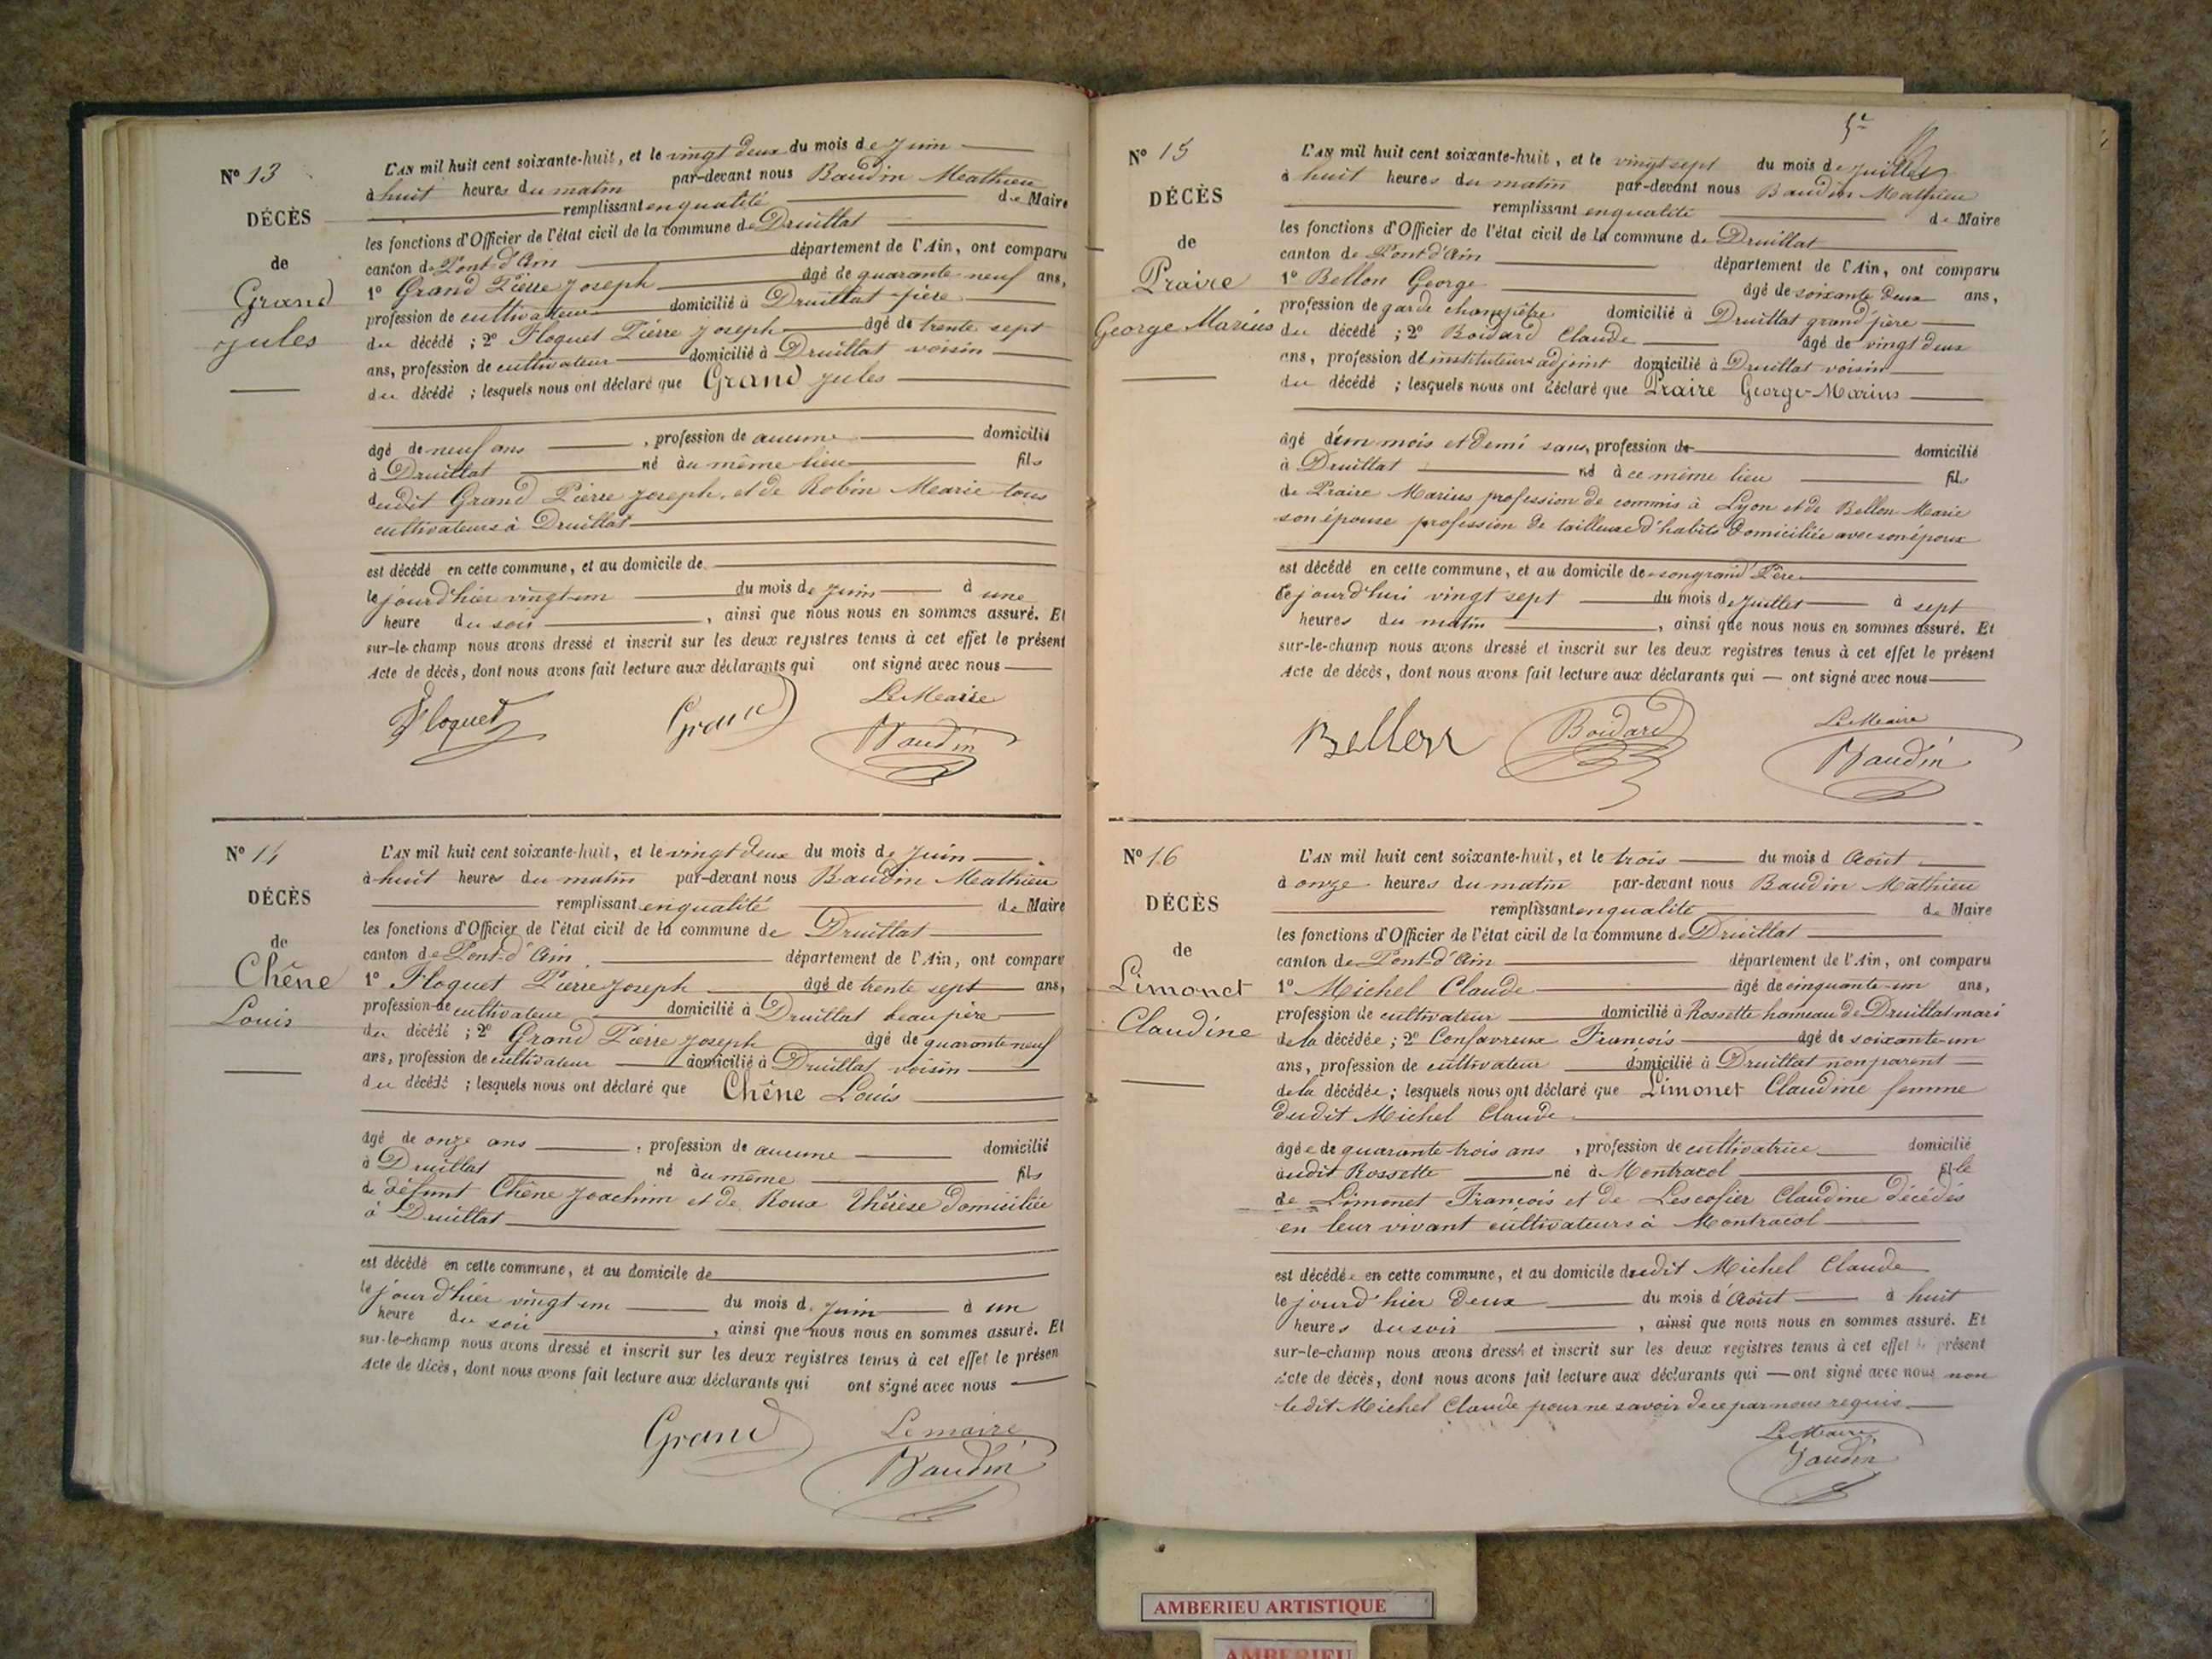 N° 13
DÉCÈS
de
Grand
Jules
L'AN mil huit cent soixante-huit, et le vingt deux du mois de Juin
à huit heures du matin par-devant nous Baudin Mathieu
remplissant en qualité de Maire
les fonctions d'Officier de l'état civil de la commune de Druillat
canton de Pont-d'Ain département de l'Ain, ont comparu
1° Grand Pierre Joseph âgé de quarante neuf ans,
profession de cultivateur domicilié à Druillat père
du décédé ; 2° Floquet Pierre Joseph âgé de trente sept
ans, profession de cultivateur domicilié à Druillat voisin
du décédé ; lesquels nous ont déclaré que Grand Jules
âgé de neuf ans , profession de aucune domicilié
à Druillat né au même lieu fils
dudit Grand Pierre Joseph, et de Robin Marie tous
cultivateurs à Druillat
est décédé en cette commune, et au domicile de
le jourd'hier vingt un du mois de Juin à une
heure du soir , ainsi que nous nous en sommes assuré. Et
sur-le-champ nous avons dressé et inscrit sur les deux registres tenus à cet effet le présent
Acte de décès, dont nous avons fait lecture aux déclarants qui ont signé avec nous
Le Maire
Floquet Grand Baudin
N° 14
DÉCÈS
de
Chêne
Louis
L'AN mil huit cent soixante-huit, et le vingt deux du mois de Juin
à huit heures du matin par-devant nous Baudin Mathieu
remplissant en qualité de Maire
les fonctions d'Officier de l'état civil de la commune de Druillat
canton de Pont-d'Ain département de l'Ain, ont comparu
1° Floquet Pierre Joseph âgé de trente sept ans,
profession de cultivateur domicilié à Druillat beau père
du décédé ; 2° Grand Pierre Joseph âgé de quarante neuf
ans, profession de cultivateur domicilié à Druillat voisin
du décédé ; lesquels nous ont déclaré que Chêne Louis
âgé de onze ans , profession de aucune domicilié
à Druillat né au même fils
de défunt Chêne Joachim et de Roux Thérèse domiciliée
à Druillat
est décédé en cette commune, et au domicile de
le jourd'hier vingt un du mois d. Juin à un
heure du soir , ainsi que nous nous en sommes assuré. Et
sur-le-champ nous avons dressé et inscrit sur les deux registres tenus à cet effet le présen
Acte de décès, dont nous avons fait lecture aux déclarants qui ont signé avec nous
Le maire
Grand Baudin
N° 15
DÉCÈS
de
Praire
George Marius
L'AN mil huit cent soixante-huit, et le vingt sept du mois de Juillet
à huit heures du matin par-devant nous Baudin Mathieu
remplissant en qualité de Maire
les fonctions d'Officier de l'état civil de la commune de Druillat
canton de Pont d'Ain département de l'Ain, ont comparu
1° Bellon George âgé de soixante deux ans,
profession de garde champêtre domicilié à Druillat grand père
du décédé ; 2° Boidard Claude âgé de vingt deux
ans, profession d'instituteur adjoint domicilié à Druillat voisin
du décédé ; lesquels nous ont déclaré que Praire George-Marius
âgé d'un mois et demi sans, profession de domicilié
à Druillat né à ce même lieu fils
de Praire Marius profession de commis à Lyon et de Bellon Marie
son épouse profession de tailleuse d'habits domiciliée avec son époux
est décédé en cette commune, et au domicile de son grand Père
Le jourd'hui vingt sept du mois de Juillet à sept
heures du matin , ainsi que nous nous en sommes assuré. Et
sur-le-champ nous avons dressé et inscrit sur les deux registres tenus à cet effet le présent
Acte de décès, dont nous avons fait lecture aux déclarants qui — ont signé avec nous
Le Maire
Bellon Boidard Baudin
N° 16
DÉCÈS
de
Limonet
Claudine
L'AN mil huit cent soixante-huit, et le trois du mois d Août
à onze heures du matin par-devant nous Baudin Mathieu
remplissant en qualité de Maire
les fonctions d'Officier de l'état civil de la commune de Druillat
canton de Pont-d'Ain département de l'Ain, ont comparu
1° Michel Claude âgé de cinquante-un ans,
profession de cultivateur domicilié à Rossette hameau de Druillat mari
de la décédée ; 2° Confavreux François âgé de soixante-un
ans, profession de cultivateur domicilié à Druillat non parent
de la décédée ; lesquels nous ont déclaré que Limonet Claudine femme
dudit Michel Claude
âgée de quarante trois ans , profession de cultivatrice domicilié
audit Rossette né à Montracol fille
de Limonet François et de Lescofier Claudine décédés
en leur vivant cultivateurs à Montracol
est décédée en cette commune, et au domicile dudit Michel Claude
le jourd'hier deux du mois d'Août à huit
heures du soir , ainsi que nous nous en sommes assuré. Et
sur-le-champ nous avons dressé et inscrit sur les deux registres tenus à cet effet le présent
Acte de décès, dont nous avons fait lecture aux déclarants qui — ont signé avec nous non
ledit Michel Claude pour ne savoir de ce par nous requis
Le Maire
Baudin
AMBERIEU ARTISTIQUE
AMBERIEU